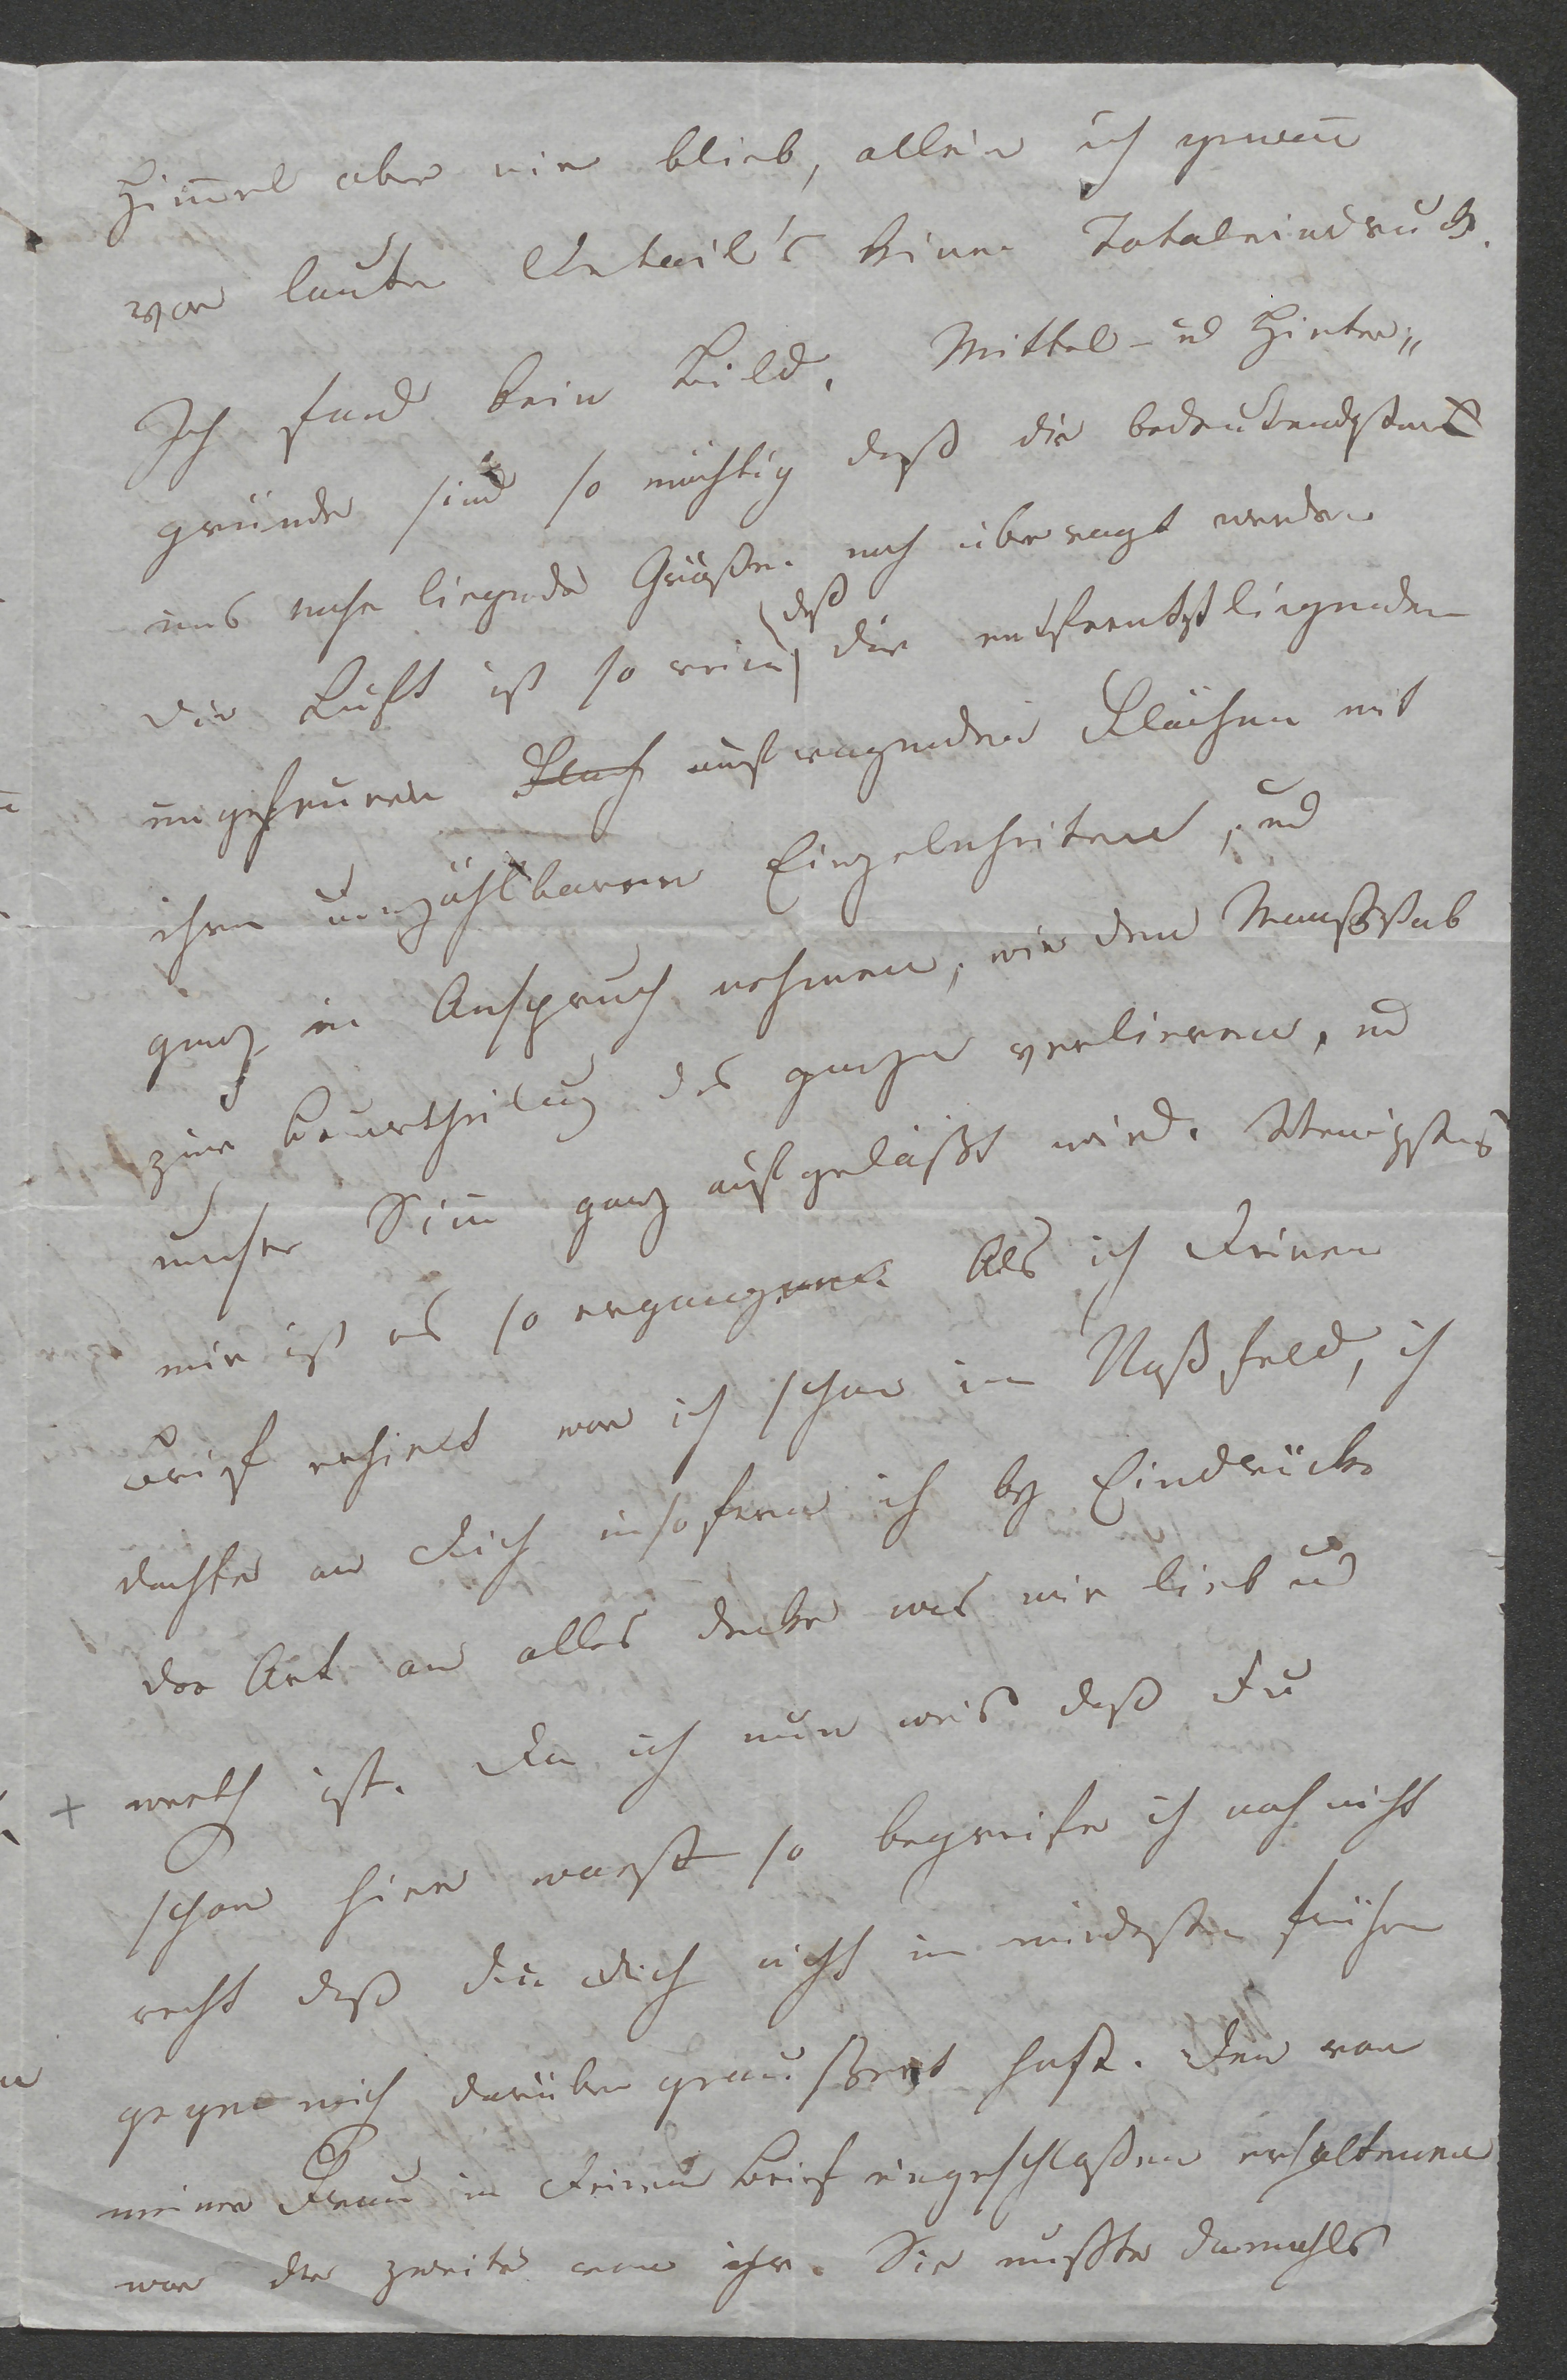 Him̄el aber nie blieb, allein ich gewan̄
vor lauter Detail's keinen Totaleindruck.
Ich fand kein Bild. Mittel- ud Hinter„
gründe sind so mächtig daß die bedeutendsten
uns nahe liegende Größen noch überragt werden
die Luft ist so rein daß die entferntst liegenden
ungeheuren Flach aufragenden Flächen mit
ihren unzählbaren Einzelnheiten, ud
ganz in Anspruch nehmen, wir den Maaßstab
zur Beurtheilung des ganzen verlieren, ud
unser Sin̄ ganz aufgelößt wird. Wenigstens
mir ist es so ergangen. Als ich Deinen
Brief erhielt war ich schon im Naßfeld, ich
dachte an Dich insofern ich by Eindrücke
der Art an alles denke was mir lieb ud
+ werth ist. Da ich nun weis daß Du
schon hier warst so begreife ich noch nicht
recht daß Du Dich nicht im mindesten früher
gegen mich darüber geäußert hast. Der von
meiner Frau in Deinem Brief eingeschloßen erhaltenen
war der zweite von ihr. Sie mußte damahls